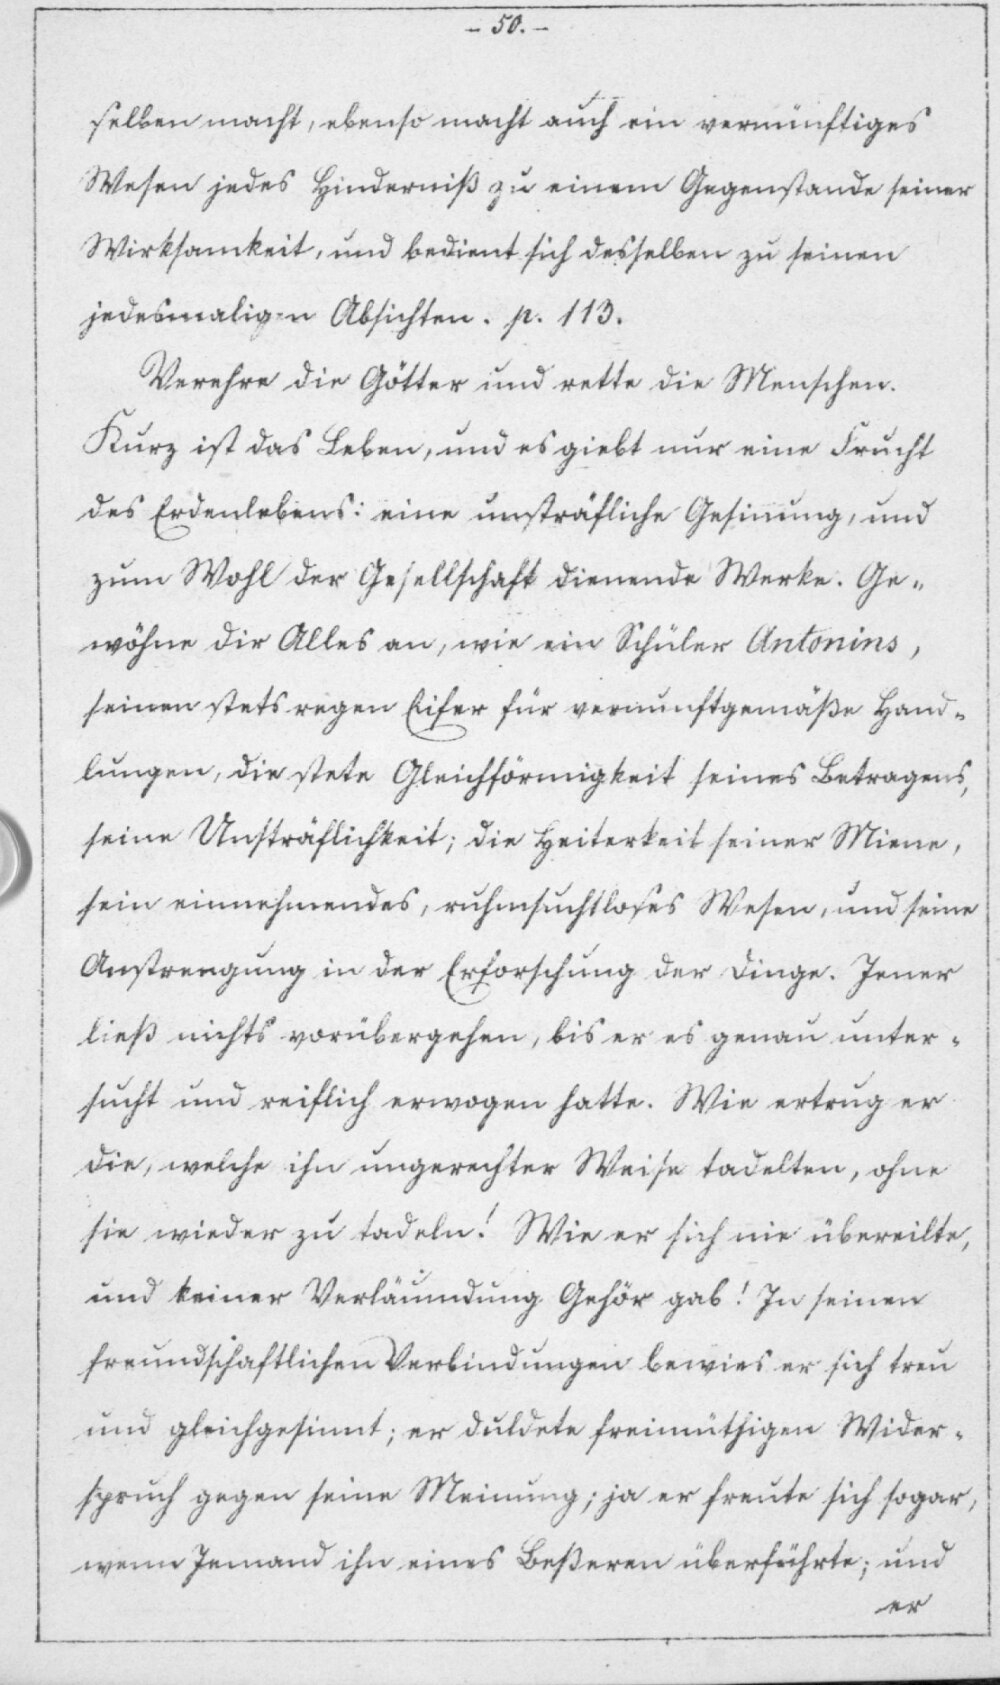 - 50. -
selben macht, ebenso macht auch ein vernünftiges
Wesen jedes Hinderniß zu einem Gegenstande seiner
Wirksamkeit, und bedient sich desselben zu seinen
jedesmaligen Absichten. p. 113.
Verehre die Götter und rette die Menschen.
Kurz ist das Leben, und es giebt nur eine Frucht
des Erdenlebens: eine unsträfliche Gesinung, und
zum Wohl der Gesellschaft dienende Werke. Ge-
wöhne dir Alles an, wie ein Schüler Antonins,
seinen stets regen Eifer für vernunftgemäße Hand-
lungen, die stete Gleichförmigkeit seines Betragens,
seine Unsträflichkeit; die Heiterkeit seiner Miene,
sein einnehmendes, ruhmsuchtloses Wesen, und seine
Anstrengung in der Erforschung der Dinge. Jener
ließ nichts vorübergehen, bis er es genau unter-
sucht und reiflich erwogen hatte. Wie ertrug er
die, welche ihn ungerechter Weise tadelten, ohne
sie wieder zu tadeln! Wie er sich nie übereilte,
und keiner Verläumdung Gehör gab! In seinen
freundschaftlichen Verbindungen bewies er sich treu
und gleichgesinnt; er duldete freimüthigen Wider-
spruch gegen seine Meinung; ja er freute sich sogar,
wenn Jemand ihn eines Beßeren überführte; und
er